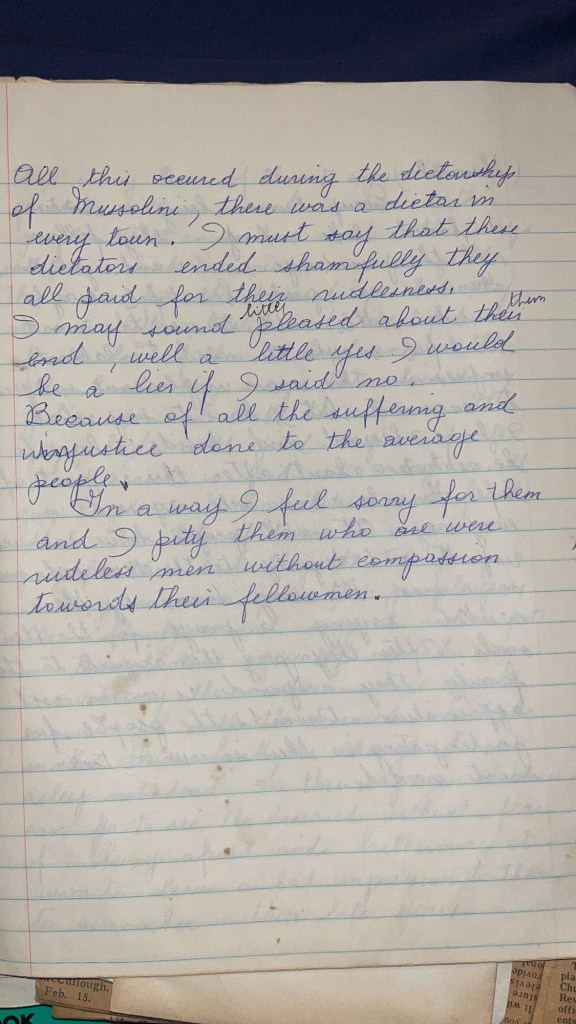 All this occured during the dictorship
of Mussolini, there was a dictar in
every town. I must say that these
dictators ended shamfully they
all paid for their rudlesness.
little them
I may sound pleased about their
end, well a little yes I would
be a lier if I said no.
Because of all the suffering and
injustice done to the average
people.
In a way I feel sorry for them
and I pity them who are were
rudeless men without compassion
towards their fellowmen.
McCullough.
Feb. 15.
OOK